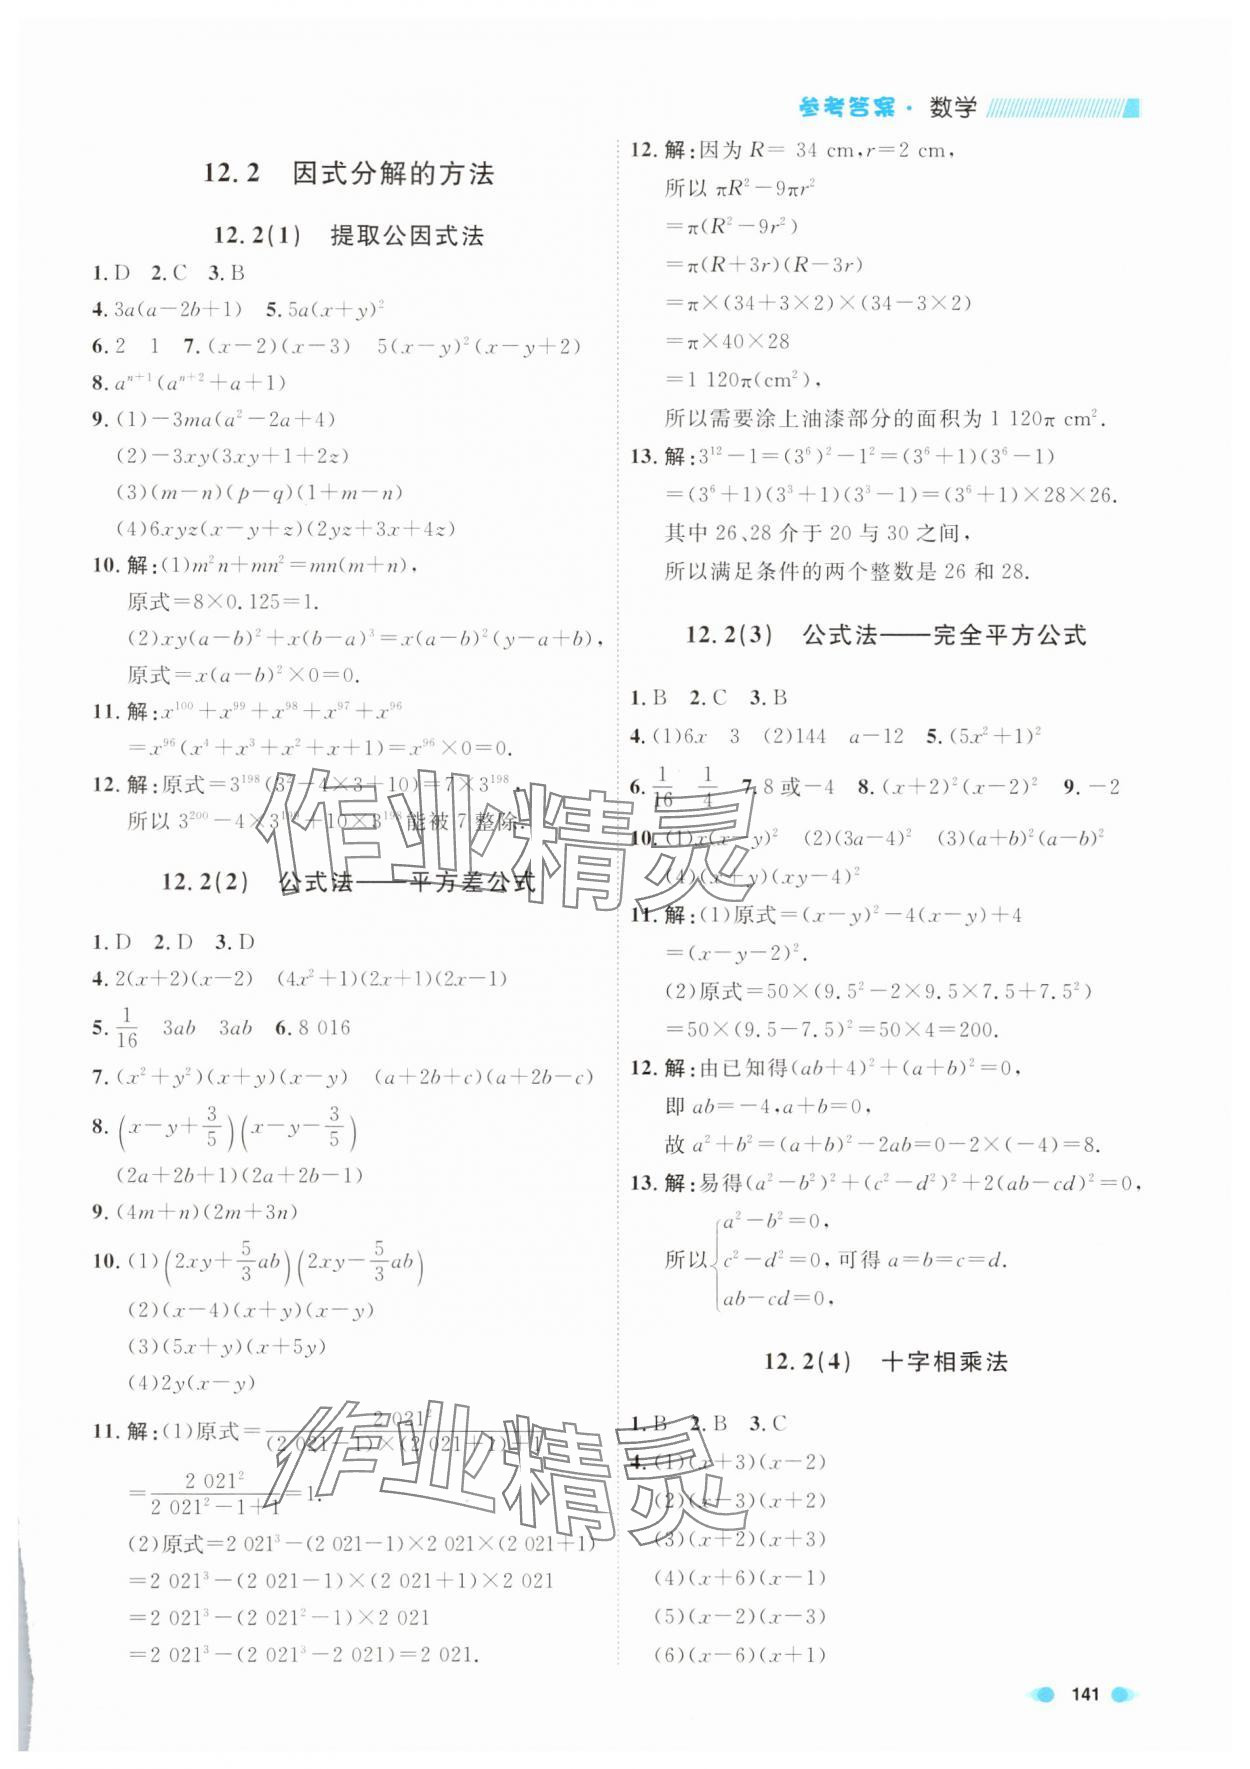 参考答案· 数学
12.2 因式分解的方法
12.2(1) 提取公因式法
1. D 2. C 3. B
4. 3a(a-2b+1) 5. 5a(x+y)²
6. 2 1 7. (x-2)(x-3) 5(x-y)²(x-y+2)
8. aⁿ⁺¹(aⁿ⁺²+a+1)
9. (1)-3ma(a²-2a+4)
(2)-3xy(3xy+1+2z)
(3)(m-n)(p-q)(1+m-n)
(4)6xyz(x-y+z)(2yz+3x+4z)
10. 解:(1)m²n+mn²=mn(m+n),
原式=8×0.125=1.
(2)xy(a-b)²+x(b-a)³=x(a-b)²(y-a+b),
原式=x(a-b)²×0=0.
11. 解:x¹⁰⁰+x⁹⁹+x⁹⁸+x⁹⁷+x⁹⁶
=x⁹⁶(x⁴+x³+x²+x+1)=x⁹⁶×0=0.
12. 解:原式=3¹⁹⁸(3²-4×3+10)=7×3¹⁹⁸.
所以 3²⁰⁰-4×3¹⁹⁹+10×3¹⁹⁸能被 7 整除.
12.2(2) 公式法——平方差公式
1. D 2. D 3. D
4. 2(x+2)(x-2) (4x²+1)(2x+1)(2x-1)
5. 1/16 3ab 3ab 6. 8 016
7. (x²+y²)(x+y)(x-y) (a+2b+c)(a+2b-c)
8. (x-y+3/5)(x-y-3/5)
(2a+2b+1)(2a+2b-1)
9. (4m+n)(2m+3n)
10. (1)(2xy+5/3ab)(2xy-5/3ab)
(2)(x-4)(x+y)(x-y)
(3)(5x+y)(x+5y)
(4)2y(x-y)
11. 解:(1)原式=2 021²/((2 021-1)×(2 021+1)+1)
=2 021²/(2 021²-1+1)=1.
(2)原式=2 021³-(2 021-1)×2 021×(2 021+1)
=2 021³-(2 021-1)×(2 021+1)×2 021
=2 021³-(2 021²-1)×2 021
=2 021³-(2 021³-2 021)=2 021.
12. 解:因为 R= 34 cm,r=2 cm,
所以 πR²-9πr²
=π(R²-9r²)
=π(R+3r)(R-3r)
=π×(34+3×2)×(34-3×2)
=π×40×28
=1 120π(cm²),
所以需要涂上油漆部分的面积为 1 120π cm².
13. 解:3¹²-1=(3⁶)²-1²=(3⁶+1)(3⁶-1)
=(3⁶+1)(3³+1)(3³-1)=(3⁶+1)×28×26.
其中 26、28 介于 20 与 30 之间,
所以满足条件的两个整数是 26 和 28.
12.2(3) 公式法——完全平方公式
1. B 2. C 3. B
4. (1)6x 3 (2)144 a-12 5. (5x²+1)²
6. 1/16 1/4 7. 8 或-4 8. (x+2)²(x-2)² 9. -2
10. (1)x(x-y)² (2)(3a-4)² (3)(a+b)²(a-b)²
(4)(x+y)(xy-4)²
11. 解:(1)原式=(x-y)²-4(x-y)+4
=(x-y-2)².
(2)原式=50×(9.5²-2×9.5×7.5+7.5²)
=50×(9.5-7.5)²=50×4=200.
12. 解:由已知得(ab+4)²+(a+b)²=0,
即 ab=-4,a+b=0,
故 a²+b²=(a+b)²-2ab=0-2×(-4)=8.
13. 解:易得(a²-b²)²+(c²-d²)²+2(ab-cd)²=0,
a²-b²=0,
所以{c²-d²=0,可得 a=b=c=d.
ab-cd=0,
12.2(4) 十字相乘法
1. B 2. B 3. C
4. (1)(x+3)(x-2)
(2)(x-3)(x+2)
(3)(x+2)(x+3)
(4)(x+6)(x-1)
(5)(x-2)(x-3)
(6)(x-6)(x+1)
141
作业精灵
作业精灵